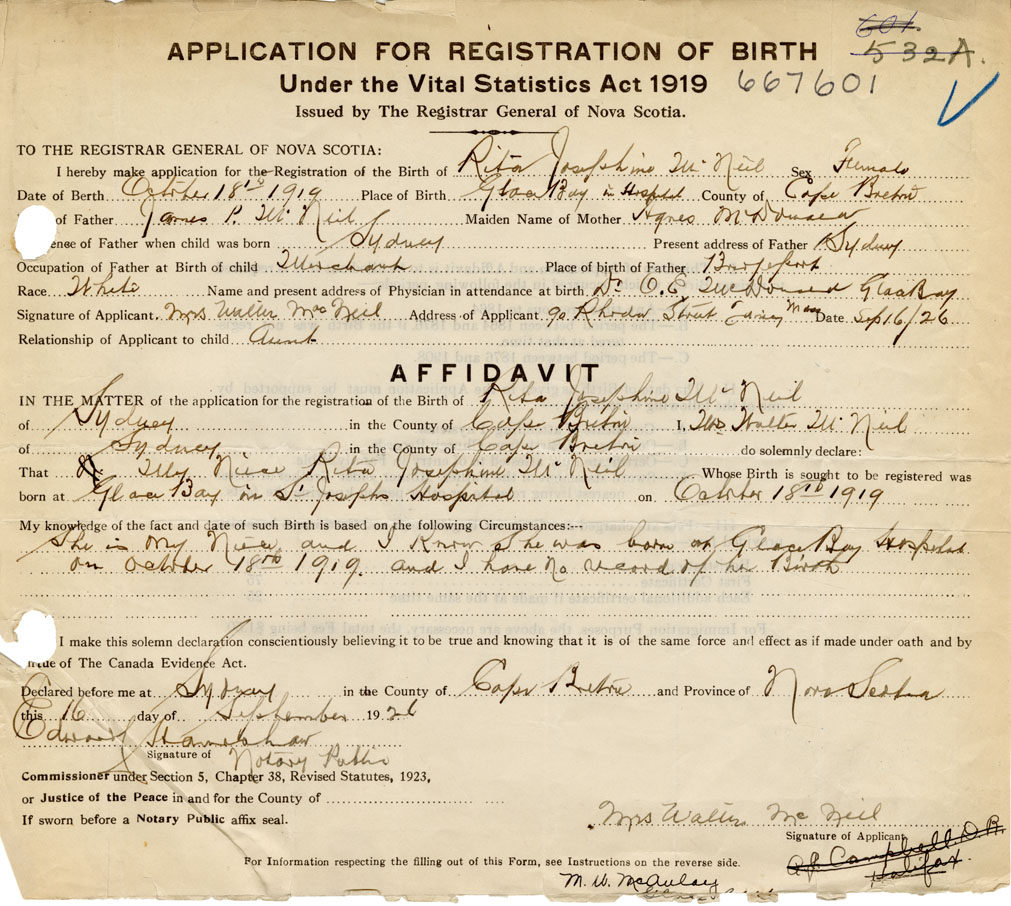 601.
532A.
APPLICATION FOR REGISTRATION OF BIRTH
Under the Vital Statistics Act 1919 667601
Issued by The Registrar General of Nova Scotia.
TO THE REGISTRAR GENERAL OF NOVA SCOTIA:
I hereby make application for the Registration of the Birth of Rita Josephine McNeil Sex Female
Date of Berth October 18th 1919 Place of Birth Glace Bay in Hospital County of Cape Breton
of Father James P. McNeil Maiden Name of Mother Agnes McDonald
ence of Father when child was born Sydney Present address of Father Sydney
Occupation of Father at Birth of child Merchant Place of birth of Father
Race White Name and present address of Physician in attendance at birth Dr McDonald Glace Bay
Signature of Applicant Mrs Walter McNeil Address of Applicant 90 Rhoda Street Mass Date Sep 16/26
Relationship of Applicant to child Aunt
AFFIDAVIT
IN THE MATTER of the application for the registration of the Birth of Rita Josephine McNeil
of Sydney in the County of Cape Breton I, Mrs Walter McNeil
of Sydney in the County of Cape Breton do solemnly declare:
That My Niece Rita Josephine McNeil Whose Birth is sought to be registered was
born at Glace Bay in St Josephs Hospital on October 18th 1919
My knowledge of the fact and date of such Birth is based on the following Circumstances:--
She is my Niece and I know she was born at Glace Bay Hospital
on October 18th 1919. and I have no record of her Birth
I make this solemn declaration conscientiously believing it to be true and knowing that it is of the same force and effect as if made under oath and by
irtue of The Canada Evidence Act.
Declared before me at Sydney in the County of Cape Breton and Province of Nova Scotia
this 16 day of September 1926
Edward
Signature of Notary Public
Commissioner under Section 5, Chapter 38, Revised Statutes, 1923,
or Justice of the Peace in and for the County of
If sworn before a Notary Public affix seal.
Mrs Walter McNeil
Signature of Applicant
A.J. Campbell. D.R.
Halifax.
For Information respecting the filling out of this Form, see Instructions on the reverse side.
M. W. McAulay